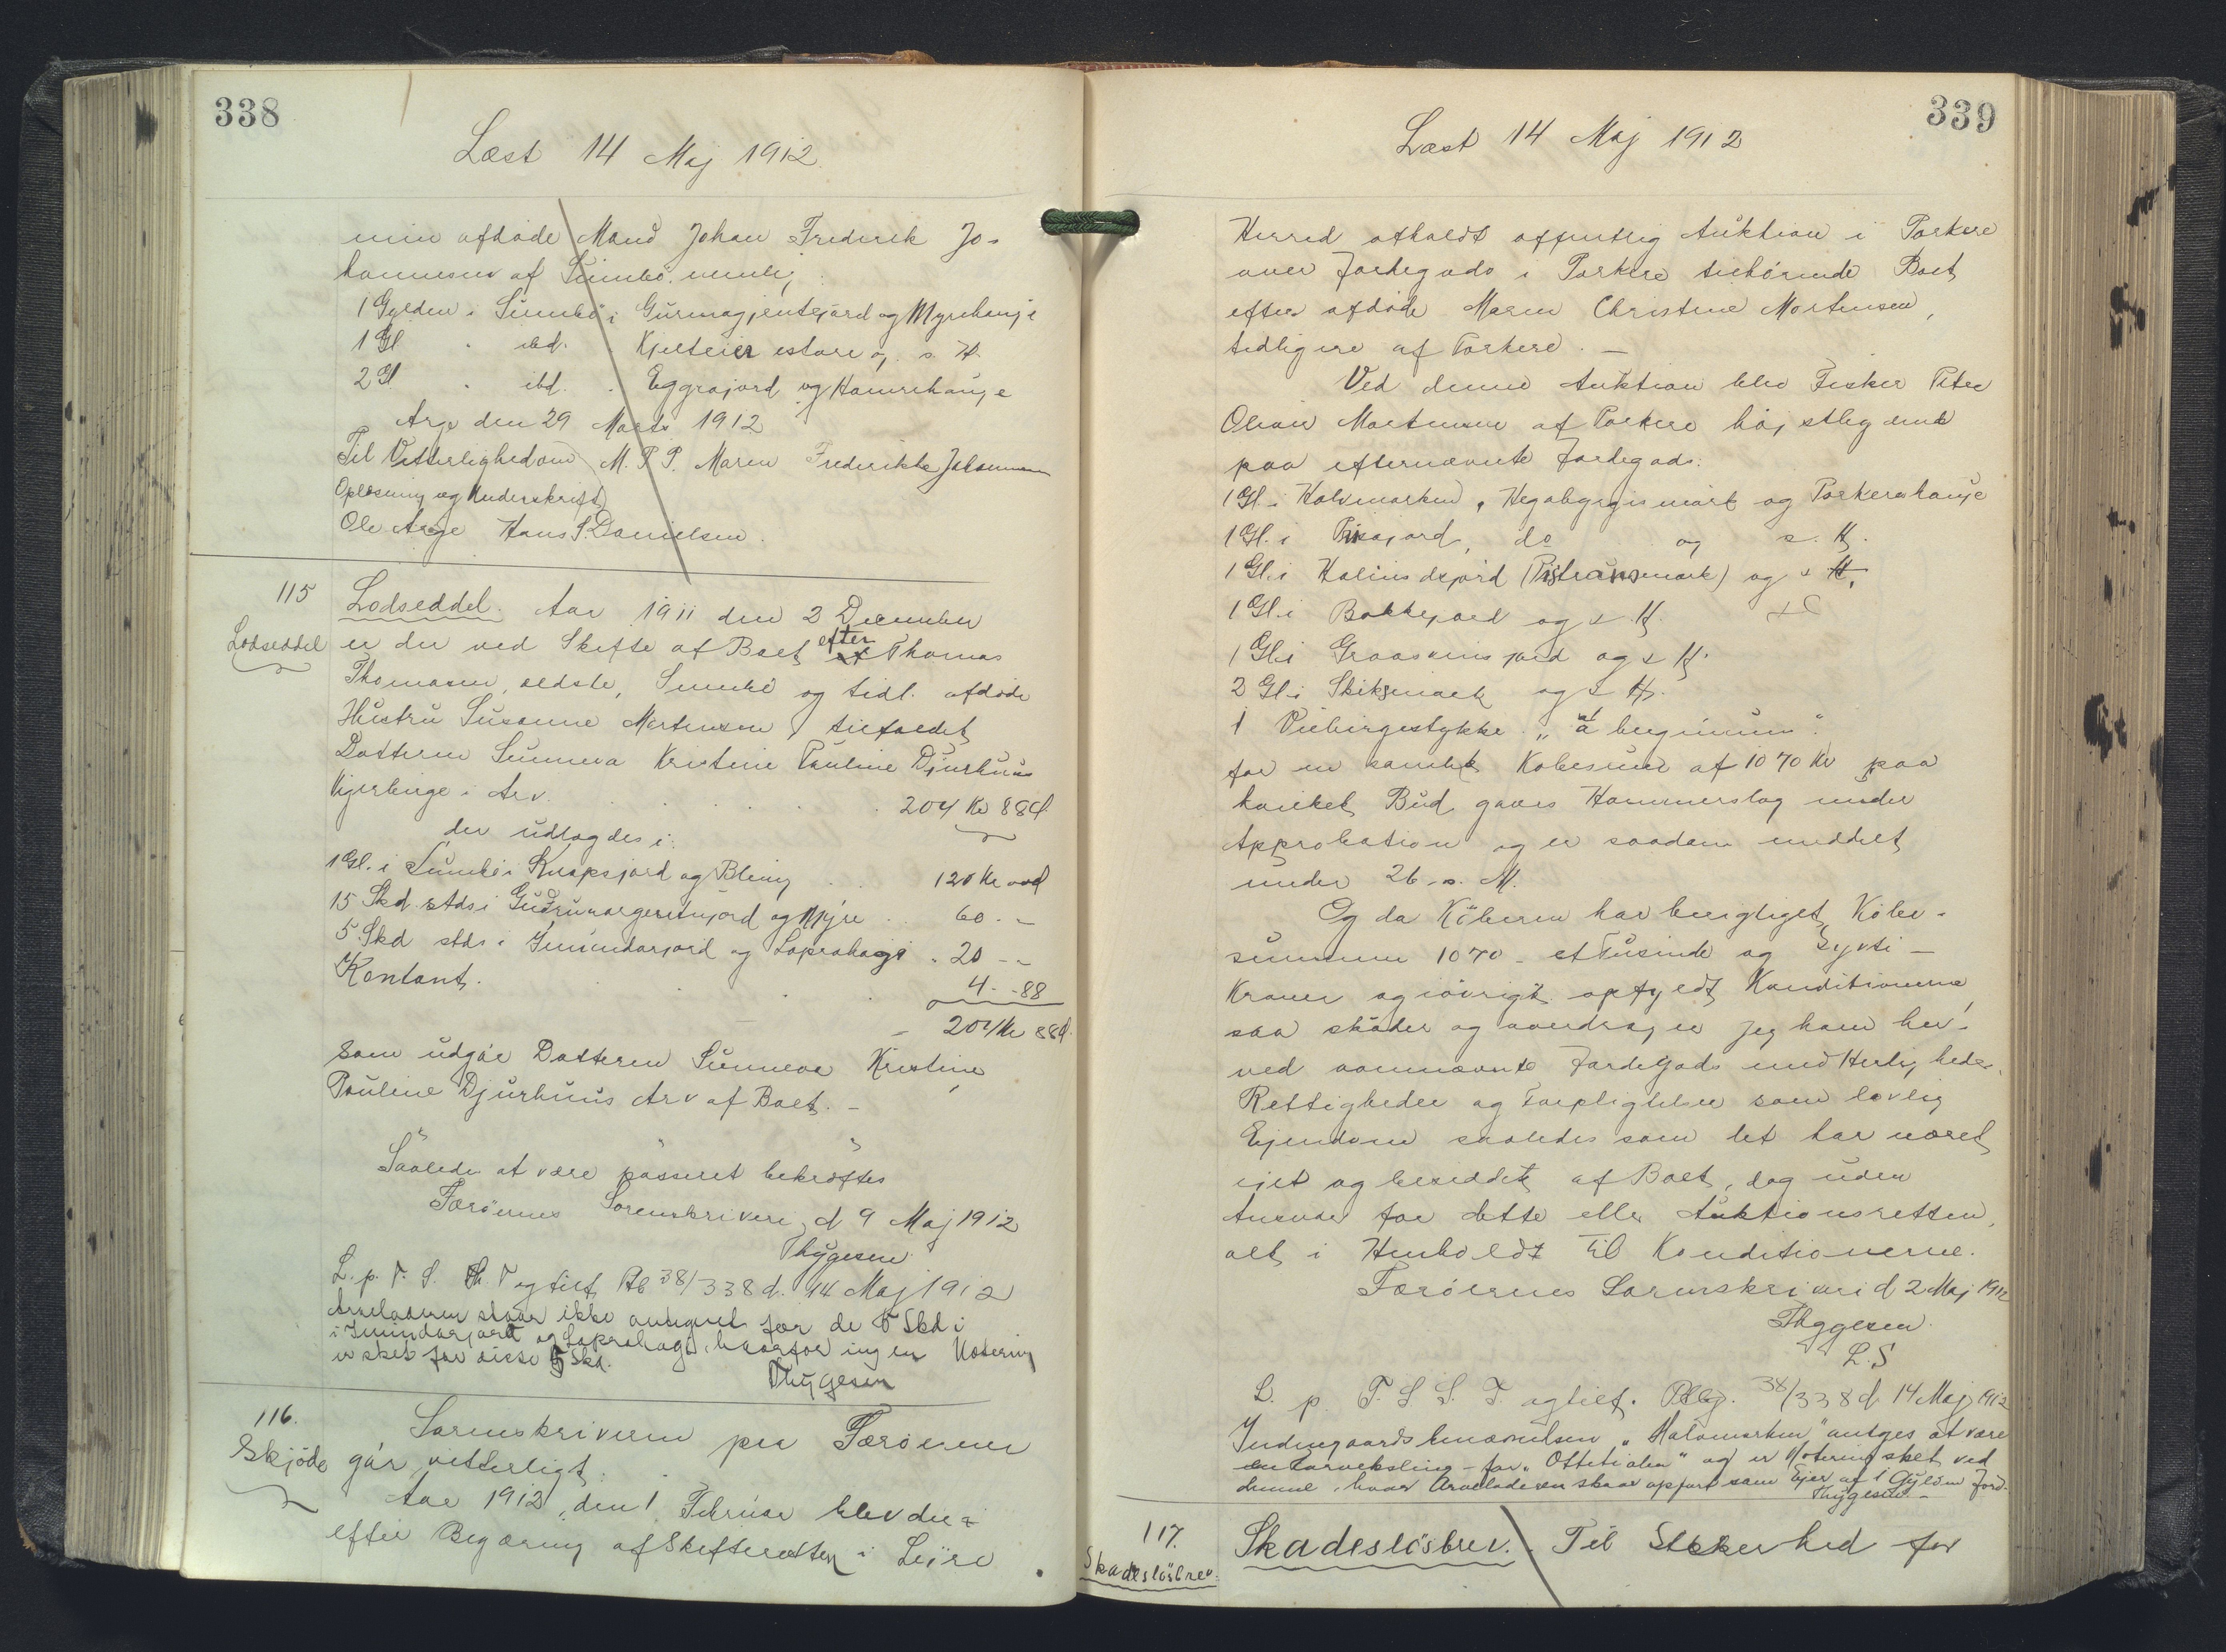 338
Læst 14 Maj 1912.
min afdøde Mand Johan Frederik Jo-
hannesen af Sumbø, nemlig:
1 Gylden i Sumbø i Gurmagjentejord og Myrehauje
1 Gl " ibd. " Kjelteier estore og s. H.
2 Gl " ibd. " Eggrajord og Hamrehauje
Arge den 29 Marts 1912
Til Vitterlighed om M. P. P. Maren Frederikke Johannesen
Oplæsning og Underskrift
Ole Arge Hans S. Danielsen.
115
Lodseddel
Lodseddel. Aar 1911 den 2 December
er der ved Skifte af Boet efter Thomas
Thomasen, ældste, Sumbø og tidl. afdøde
Hustru Susanne Mortensen tilfaldet
Datteren Sunneva Kristine Pauline Djurhuus
Kjerbirge i Arv. 204 Kr 88 Ø
der udlagdes i:
1 Gl. i Sumbø i Knapsjord og Bleing 120 Kr ooØ
15 Skd stds i Gudrunargeretujord og Myre 60 - -
5 Skd stds i Imundarjord og Loprahage " 20 - -
Kontant. 4 - - 88
204 Kr 88Ø.
som udgør Datteren Sunneva Kristine
Pauline Djurhuus Arv af Boet. -
Saaledes at være passeret bekræftes
Færøernes Sorenskriveri, d 9 Maj 1912
Thygesen
L. p. F. S. Th. T og tilf. Pb 38/338 d. 14 Maj 1912
Arveladeren staar ikke antegnet for de 5 Skd i
i Imundarjord og Loprahage, hvorfor ingen Notering
er sket for disse 5 Skd.
Thygesen
116.
Skjøde
Sorenskriveren paa Færøerne
gør vitterligt:
Aar 1912, den 1 Februar blev der
efter Begæring af Skifteretten i Lejre
339
Læst 14 Maj 1912
Herred afholdt offentlig Auktion i Porkere
over Jordegods i Porkere tilhørende Boet
efter afdøde Maren Christine Mortensen,
tidligere af Porkere. -
Ved denne Auktion blev Fisker Peter
Olivur Mortensen af Porkere højstbydende
paa efternævnte Jordegods:
1 Gl. i Halvmarken, Hegabygis mørk og Porkerahauje
1 Gl. i Prisajord, do og s. H.
1 Gl. i Halinsdsjord (Pistransmark) og s H.
1 Gl. i Bakkejord og s. H.
1 Gl. i Graasteinsjord og s H.
2 Gl. i Skiksmørk og s H.
1 Udbirgestykke "å bugvinum"
for en samlet Købesum af 1070 Kr paa
hvilket Bud gaves Hammerslag under
Approbation og er saadan meddelt
under 26. s. M.
Og da Køberen har berigtiget Købe-
summen 1070 - et Tusinde og Syvti -
Kroner og iøvrigt opfyldt Konditionerne,
saa skøder og overdrager jeg ham her-
ved ovennævnte Jordegods med Herligheder,
Rettigheder og Forpligtelser som lovlig
Ejendom saaledes som det har været
ejet og besiddet af Boet, dog uden
Ansvar for dette eller Auktionsretten,
alt i Henhold til Konditionerne.
Færøernes Sorenskriveri d 2 Maj 1912
Thygesen
L.S
L. p. F. S S. T. og tilf. Pbg. 38/338 d. 14 Maj 1912
Indmgaardsbenævnelsen "Halvmarken" antages at være
en Forveksling for "Ottetialen" og er Notering sket ved
denne, hvor Arveladeren staar opført som Ejer af 1 Gylden Jord.
Thygesen. -
117.
Skadesløsbrev.
Skadesløsbrev. Til Sikkerhed for